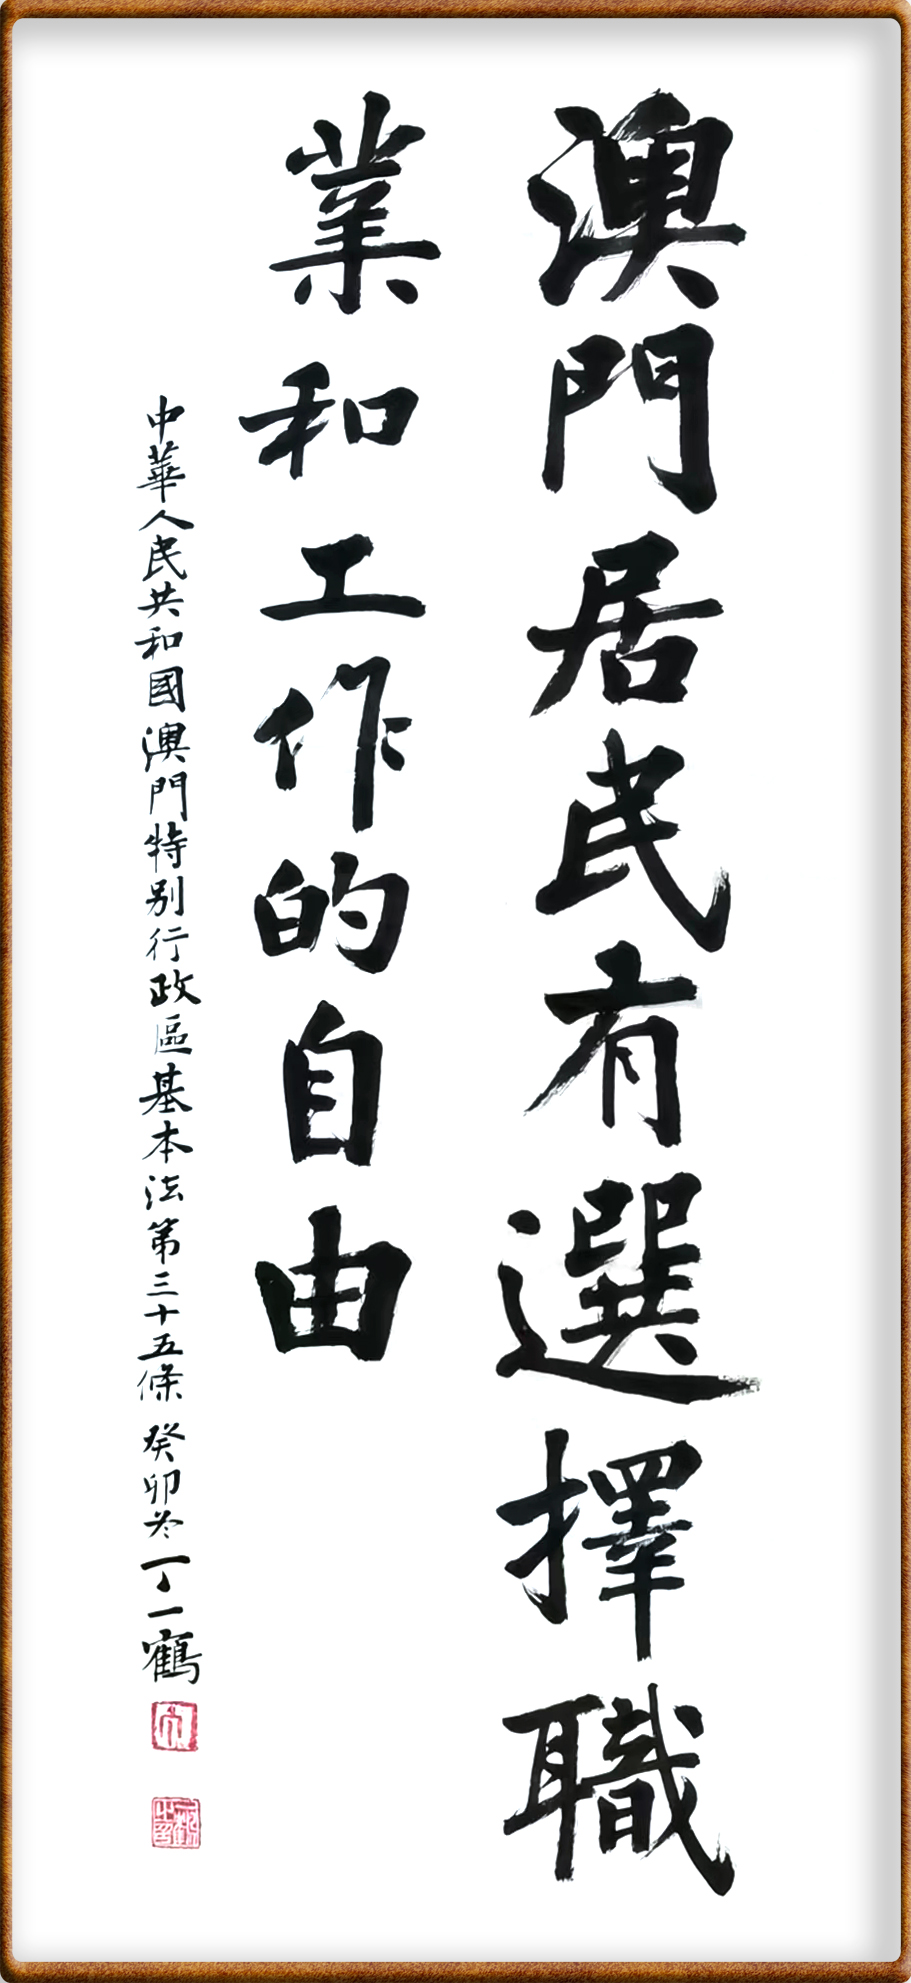 澳門居民有選擇職
業和工作的自由
中華人民共和國澳門特别行政區基本法第三十五條 癸卯冬 丁一鶴